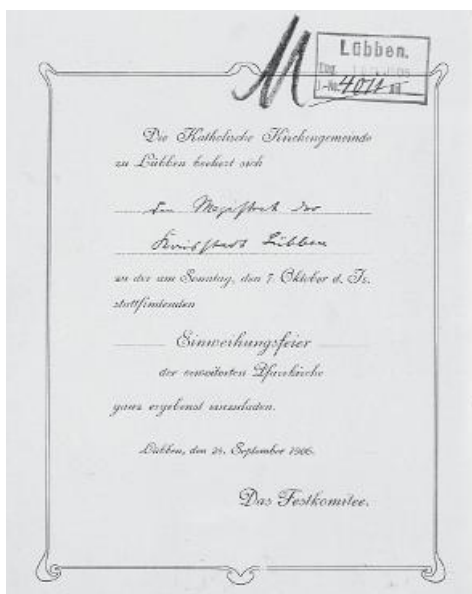 Lübben.
4011
Die Katholische Kirchengemeinde
zu Lübben beehrt sich
den Magistrat der
Kreisstadt Lübben
zu der am Sonntag, den 7. Oktober d. Js.
stattfindenden
Einweihungsfeier
der erweiterten Pfarrkirche
ganz ergebenst einzuladen.
Lübben, den 24. September 1906.
Das Festkomitee.